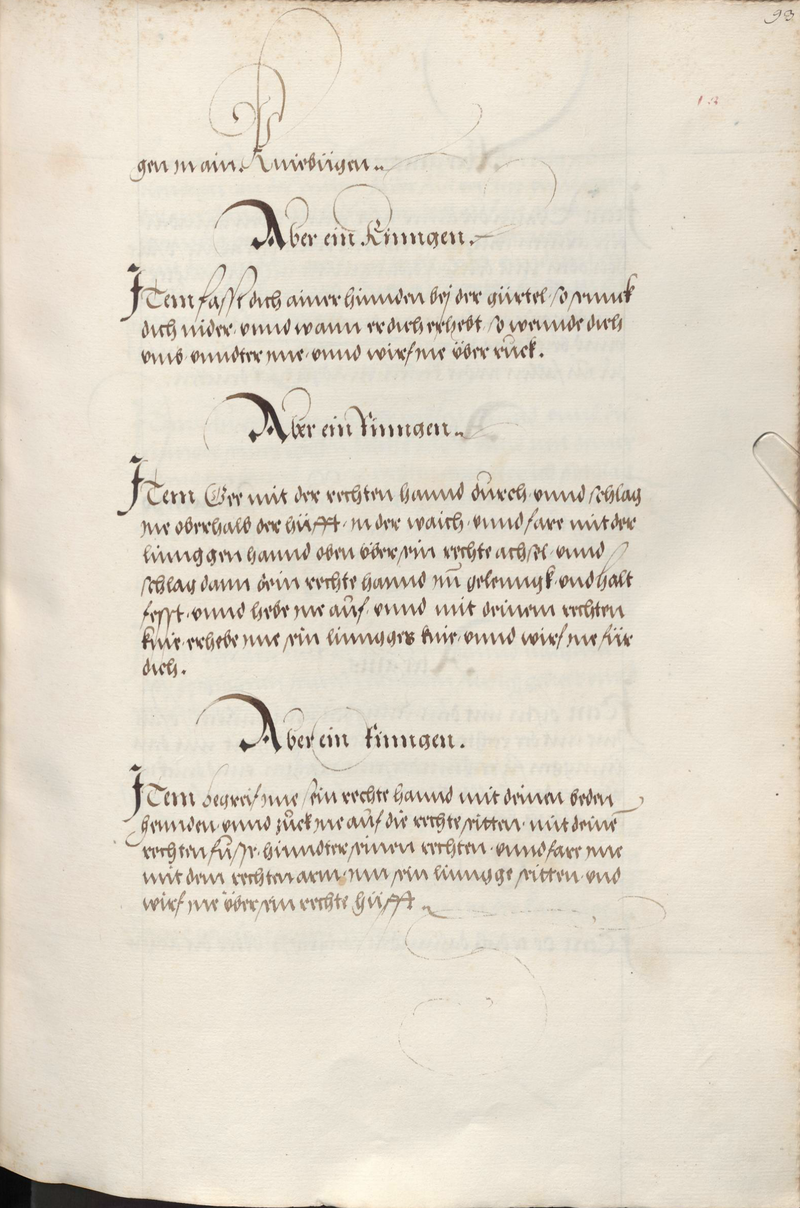 93
gen in ain Kniebügen
Aber ein Ringen.
ITem fasst dich ainer hinnden bej der gürtel, so sennck
dich nider, vnnd wann er dich erhebt, so wennde dich
vmb vnndter ime, vnnd wirf ine über rück.
Aber ein Ringen
ITem Gee mit der rechten hannd durch, vnnd schlag
ine oberhalb der hüfft, in der waich, vnnd fare mit der
linnggen hannd oben über sein rechte achsel, vnnd
schlag dann dein rechte hannd inn gelenngk, vnd halt
fesst, vnnd hebe ine auf, vnnd mit deinem rechten
knie, erhebe ime sein linngges knie, vnnd wirf ine für
dich.
Aber ein Ringen.
ITem begreif ime sein rechte hannd mit deinen beden
hennden, vnnd zuck ine auf die rechte seitten, mit deinē
rechten fuss, hinndter seinen rechten, vnnd fare ime
mit dem rechten arm, inn sein linngge seitten, vnd
wirf ine über sein rechte hüfft